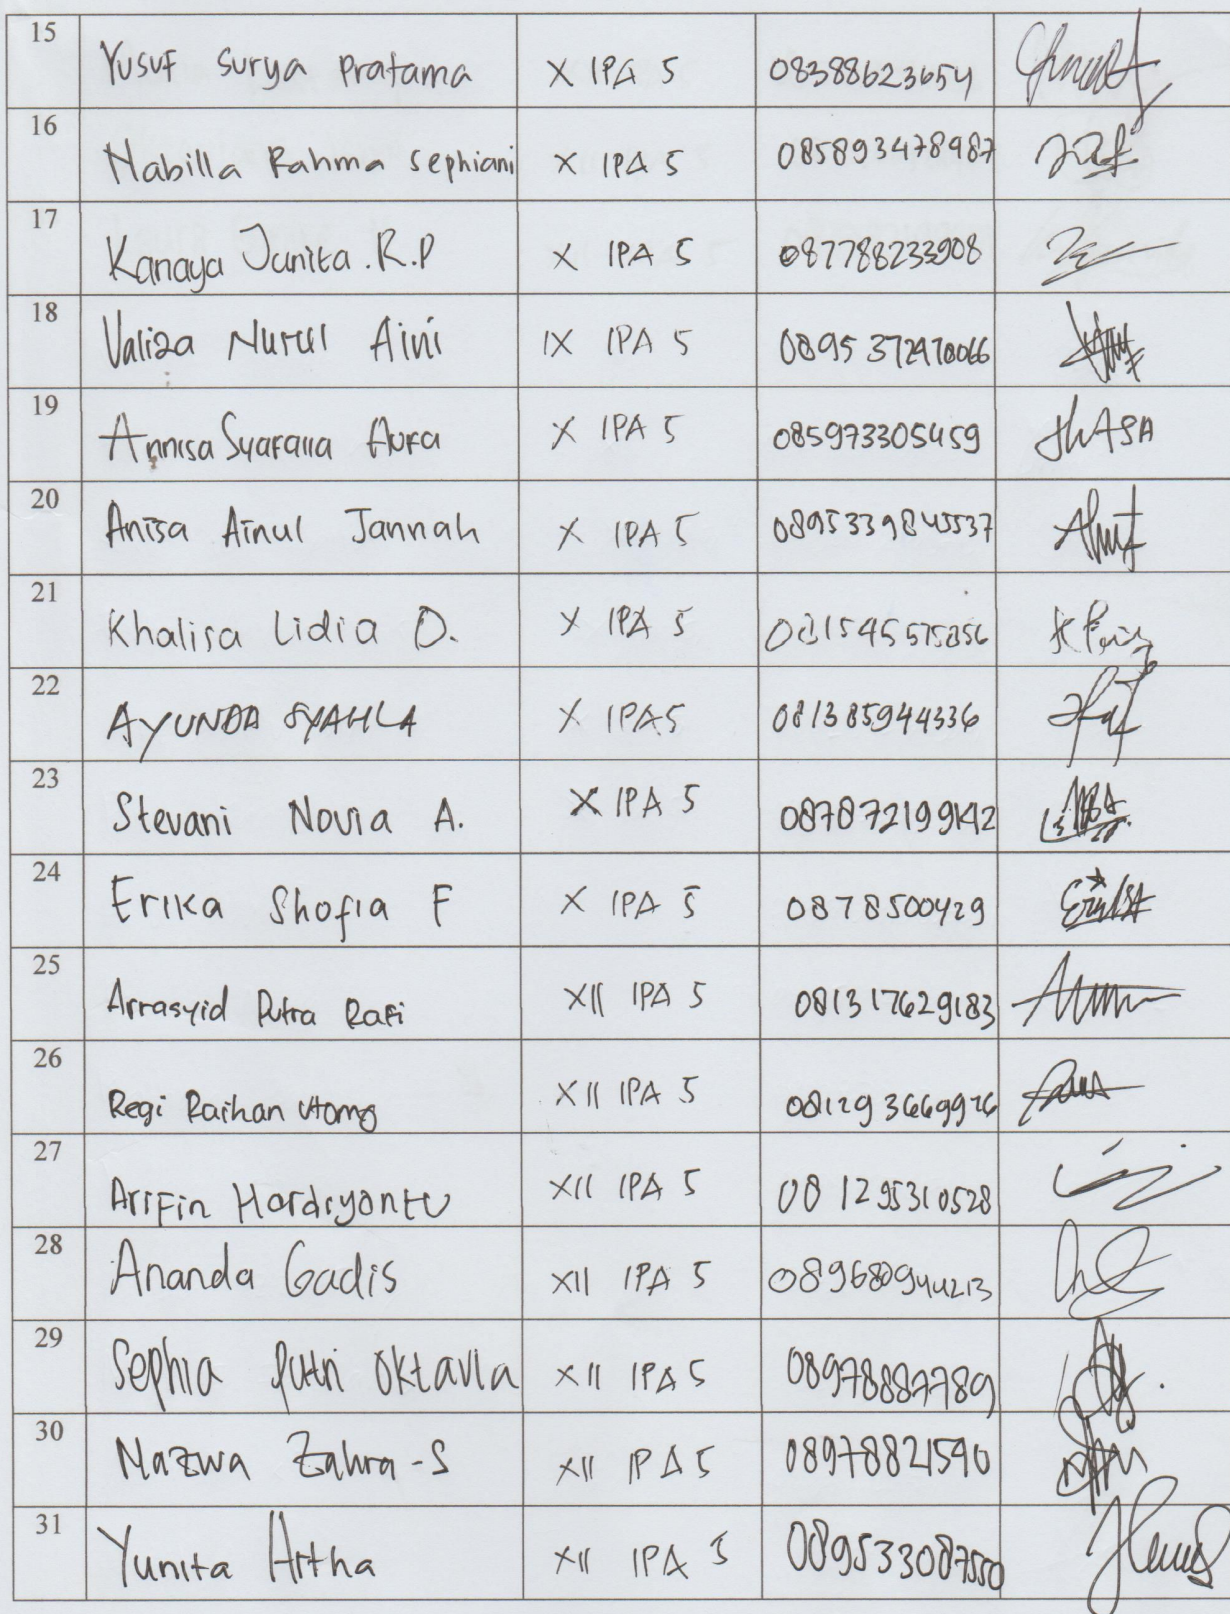 15 Yusuf Surya Pratama X IPA 5 08388623654
16 Nabilla Rahma Sephiani X IPA 5 085893478987
17 Kanaya Junita.R.P X IPA 5 087788233908
18 Valiza Nurul Aini IX IPA 5 0895372970066
19 Annisa Syaralla Aura X IPA 5 085973305459
20 Anisa Ainul Jannah X IPA 5 0895339845537
21 Khalisa Lidia D. X IPA 5
22 AYUNDA SYAHLA X IPA 5 081385944336
23 Stevani Novia A. X IPA 5
24 Erika Shofia F X IPA 5 0878500429
25 Arrasyid Putra Rafi XII IPA 5 081317629183
26 Regi Raihan Utomo XII IPA 5 081293669926
27 Arifin Hardiyanto XII IPA 5 08 1295310528
28 Ananda Gadis XII IPA 5 089680944213
29 Sephia Putri Oktavia XII IPA 5 08978887789
30 Nazwa Zahra-S XII IPA 5 08978821590
31 Yunita Artha XII IPA 5 089533087550